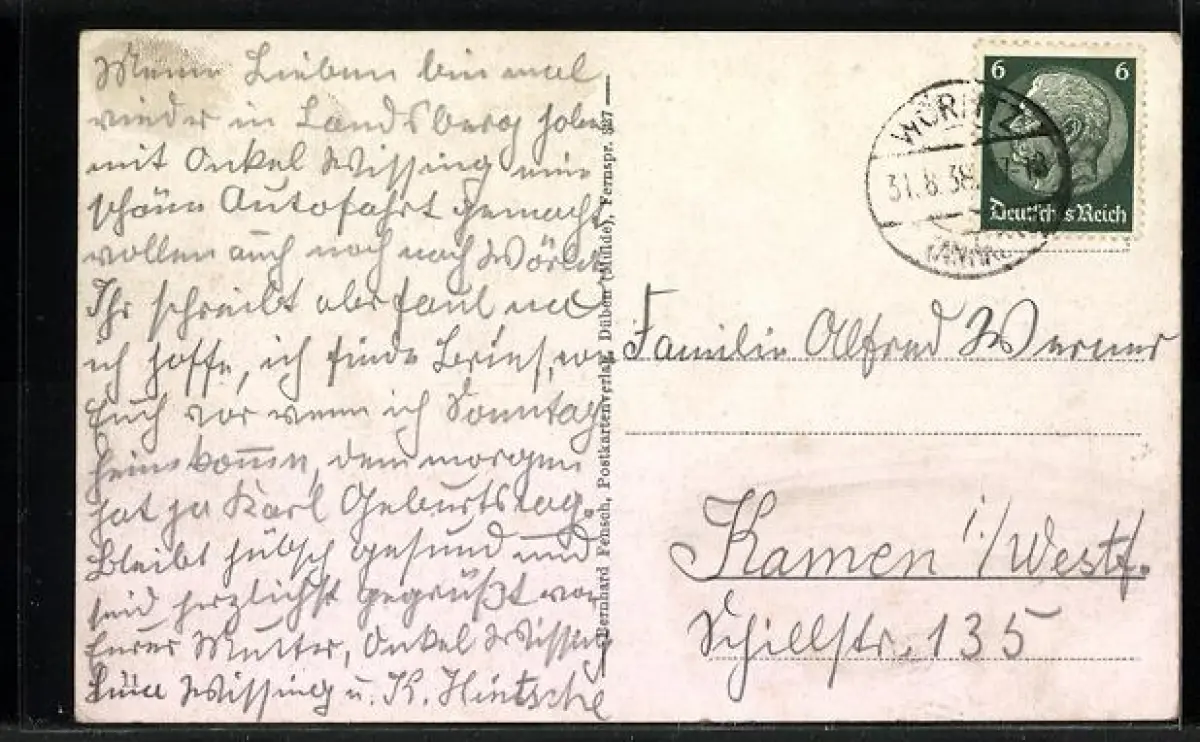 Meine Lieben bin mal
wieder in Landsberg habe
mit Onkel Wissing eine
schöne Autofahrt gemacht,
wollen auch noch nach Wörlitz
Ihr schreibt aber faul und
ich hoffe, ich finde Brief von
Euch vor wenn ich Sonntag
heimkomme, denn morgen
hat ja Karl Geburtstag.
Bleibt hübsch gesund und
seid herzlichst gegrüßt von
Eurer Mutter, Onkel Wissing
Wissing u. K. Hintsche
Bernhard Fensch, Postkartenverlag, Düben (Mulde), Fernspr. 327
6 6
Deutsches Reich
WÖRLITZ
31.8.38
(ANHALT)
Familie Alfred Werner
Kamen i/Westf.
Schillstr. 135